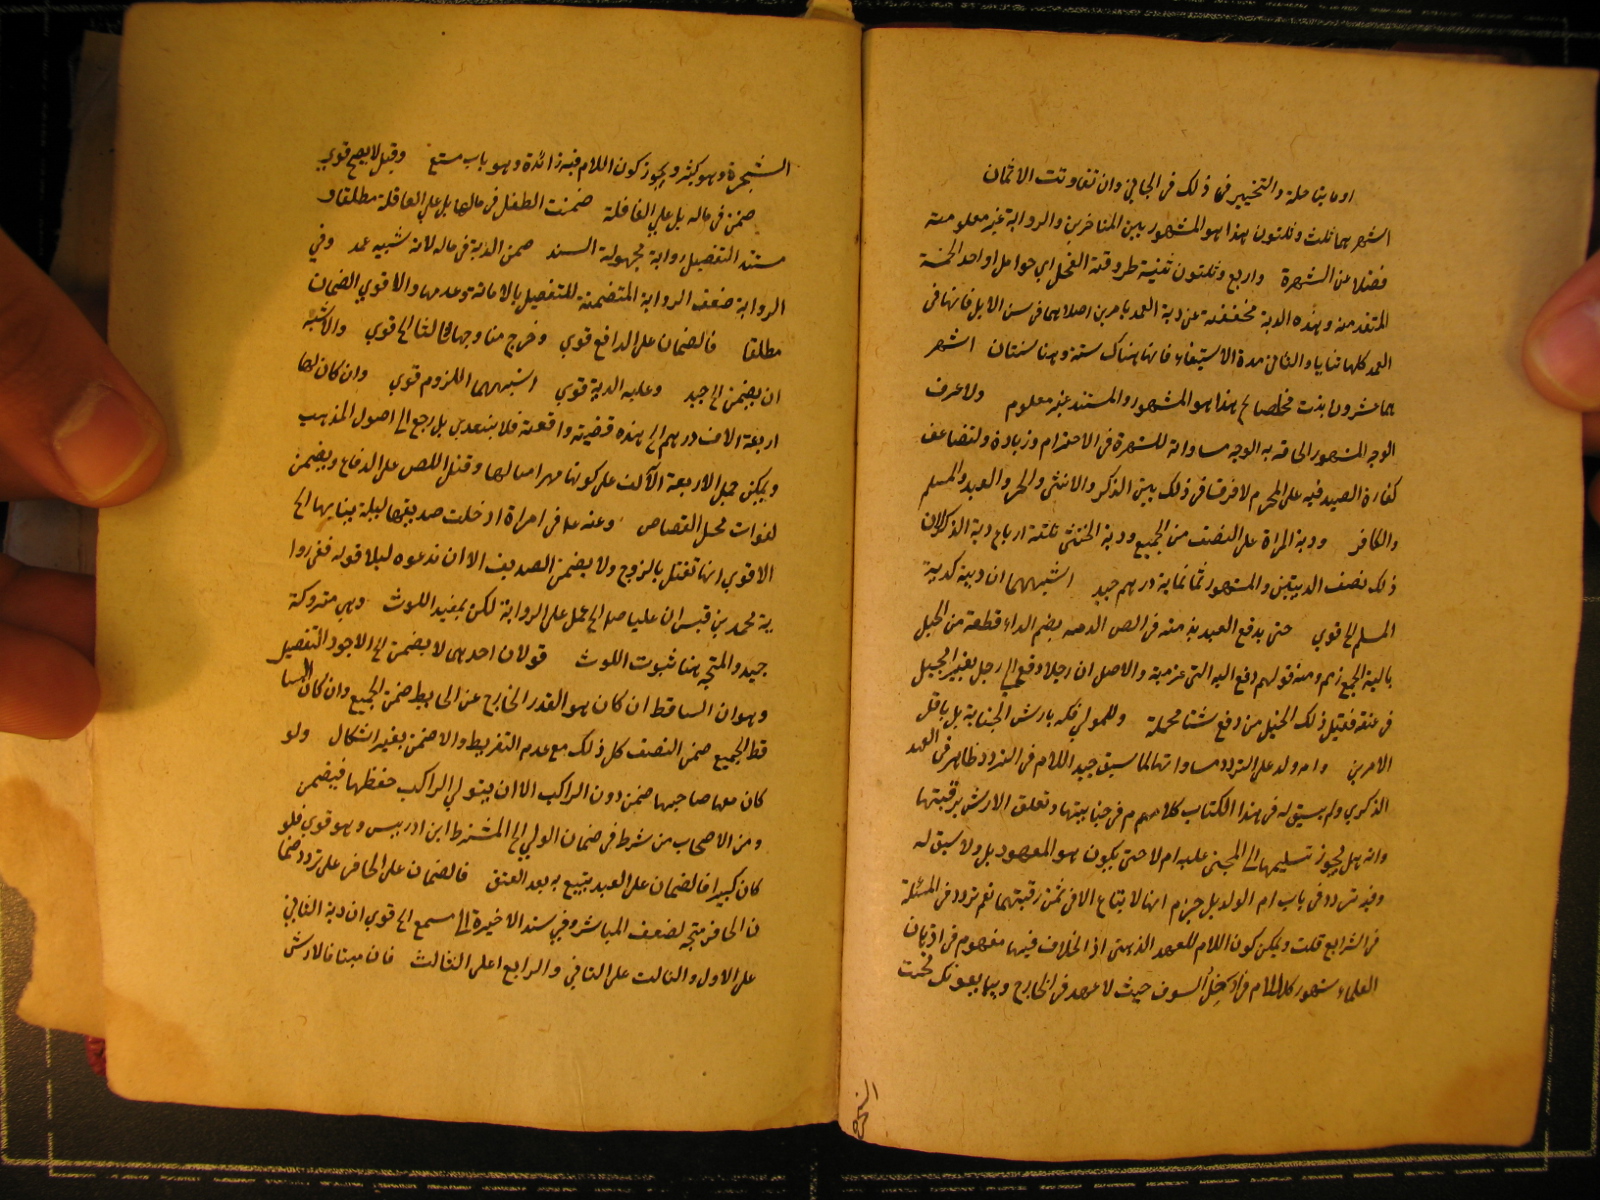 او ما يتا حلة والتخيير في ذلك في الجاني وان تفاوتت الاثمان
اشهرهما ثلث وثلثون هذا هو المشهور بين المتاخرين والرواية غير معلومة
فضلا عن الشهرة واربع وثلثون ثنية طروقة الفحل اي حوامل او احد الخمسة
المتقدمة وهذه الدية مخففة عن دية العمد بامرين احدهما في سن الابل فانها في
العمد كلها ثنايا والثاني مدة الاستيفاء فانها هناك سنة وهنا سنتان اشهر
هما عشرون بنت مخاض الخ هذا هو المشهور والمستند غير معلوم ولا عرف
الوجه المشهور الحاقه به الوجه مساواته للشهرة في الاحترام وزيادة ولتضاعف
كفارة الصيد فيه على المحرم لا فرق في ذلك بين الذكر والانثى والحر والعبد والمسلم
والكافر ودية المراة على النصف من الجميع ودية الخنثى ثلثة ارباع دية الذكر لان
ذلك نصف الديتين والمشهور ثمانماية درهم جيد اشبههما ان ديته كدية
المسلم الخ قوي حتى يدفع العبد برمته في الص الرمة بضم الراء قطعة من الحبل
بالية الجمع رمم ومنه قولهم دفع اليه الشي برمته والاصل ان رجلا دفع الى رجل بعير الحبل
في عنقه فقيل ذلك لكل من دفع شيئا بجملته وللمولى فكه بارش الجناية بل باقل
الامرين وام ولد على التردد مساواتها لما سبق جيد اللام في التردد ظاهر في العهد
الذكري ولم يسبق له في هذا الكتاب كلامهم في جنايتها وتعلق الارش برقبتها
وانه هل يجوز تسليمها الى المجني عليه ام لا حتى يكون هو المعهود بل ولا سبق له
وفيه تردد في باب ام الولد بل جزم انها لا تباع الا في ثمن رقبتها نعم تردد في المسئلة
في الشرايع قلت ويمكن كون اللام للعهد الذهني اذ الخلاف فيها مفهوم في اذهان
العلماء مشهور كاللام في ادخل السوق حيث لا عهد في الخارج ويبايعونك تحت
الشجرة
الشجرة وهو كثير ويجوز كون اللام فيه زائدة وهو باب متسع وقيل لا يصح قوي
ضمن في ماله بل على العاقلة ضمنت الطفل في مالها بل على العاقلة مطلقا و
مستند التفصيل رواية مجهولة السند ضمن الدية في ماله لانه شبيه عمد وفي
الرواية ضعف الرواية المتضمنة للتفصيل بالامانة وعدمها والاقوى الضمان
مطلقا فالضمان على الدافع قوي وخرج متاوجها ثالثا الخ قوي والاشبه
ان يضمن الخ جيد وعليه الدية قوي اشبههما اللزوم قوي وان كان لها
اربعة الاف درهم الخ هذه قضية واقعة فلا يتعدى بل رجع الى اصول المذهب
ويمكن حمل الاربعة الآلاف على كونها مهر امثالها وقتل اللص على الدفاع ويضمن
لفوات محل القصاص وعنه ع في امراة ادخلت صديقها ليلة بنايها الخ
الاقوى انها تقتل بالزوج ولا يضمن الصديق الا ان تدعوه ليلا قوله ففي روا
ية محمد بن قيس ان عليا ع الخ عمل على الرواية لكن بمفيد اللوث وهي متروكة
جيد والمتجه هنا ثبوت اللوث قولان احدهما لا يضمن الخ الاجود التفصيل
وهو ان الساقط ان كان هو القدر الخارج عن الحايط ضمن الجميع وان كان السا
قط الجميع ضمن النصف كل ذلك مع عدم التفريط والا ضمن بغير اشكال ولو
كان معها صاحبها ضمن دون الراكب الا ان يتولى الراكب حفظها فيضمن
ومن الاصحاب من شرط في ضمان الولي الخ المشترط ابن ادريس وهو قوي فلو
كان كبيرا فالضمان على العبد يتبع به بعد العتق فالضمان على الحافر على تردد ضما
ن الحافر متجه لضعف المباشر وفي سند الاخيرة الى مسمع الخ قوي ان دية الثاني
على الاول والثالث على الثاني والرابع على الثالث فان مبتنا فالارش